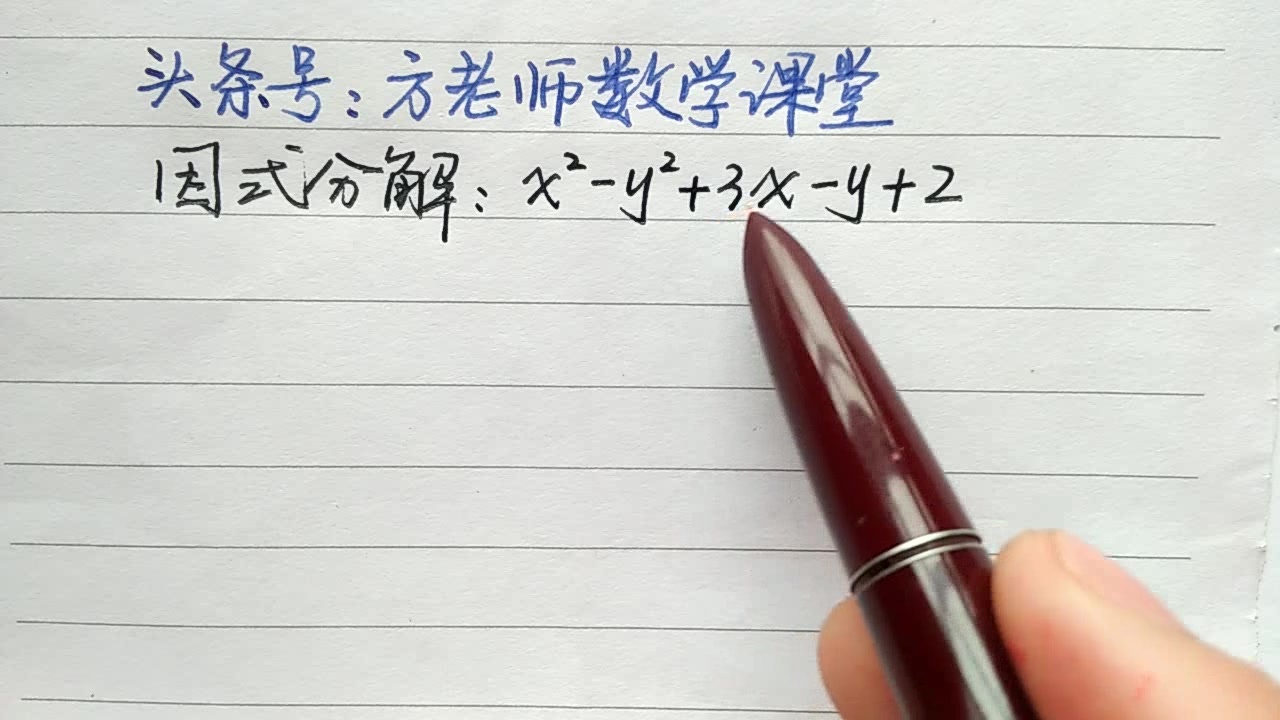 头条号：方老师数学课堂
因式分解：x²-y²+3x-y+2